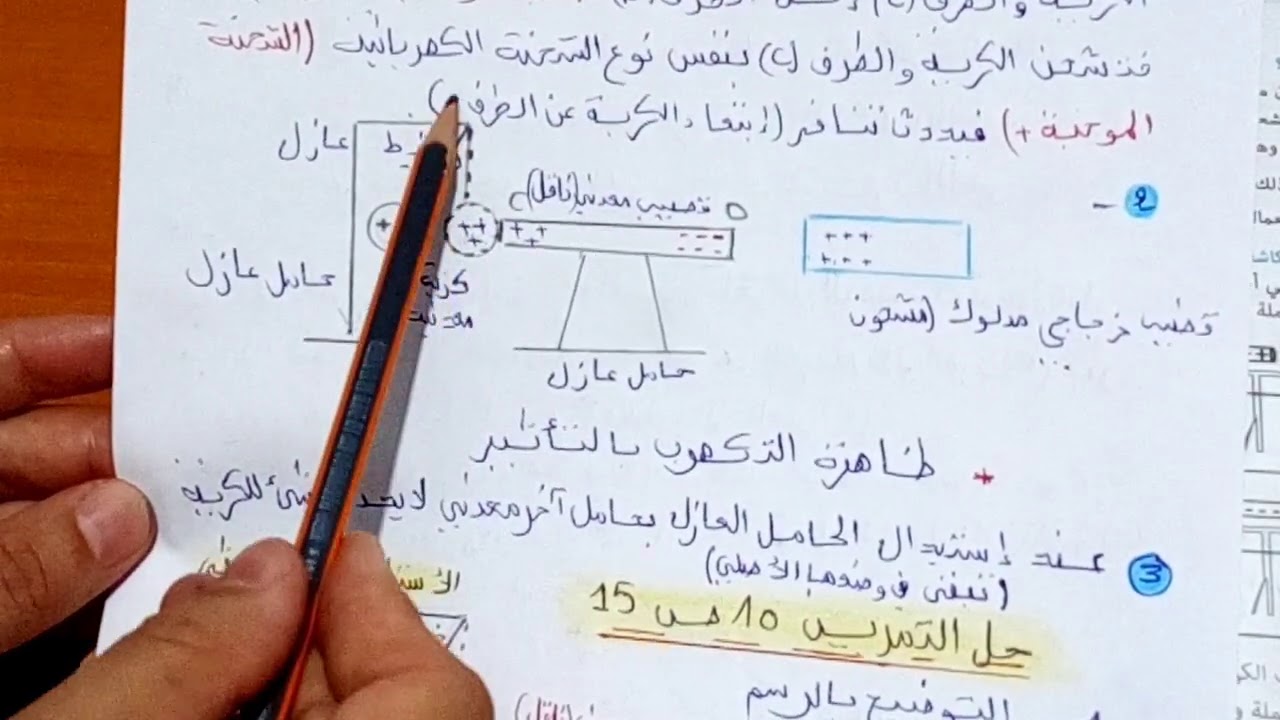 فتشحن الكرية والطرف (C) بنفس نوع الشحنة الكهربائية (الشحنة
الموجبة +) فيحدث تنافر (إبتعاد الكرية عن الطرف
عازل
C قضيب معدني (ناقل) D
2 -
+ + + +
+ + +
- - -
+ + +
+ + +
حامل عازل
كرية
معدنية
قضيب زجاجي مدلوك (مشحون
...
حامل عازل
* ظاهرة التكهرب بالتأثير
3 عند إستبدال الحامل العازل بحامل آخر معدني لا يحدث شيء للكرية
(تبقى في وضعها الأصلي)
حل التمرين 10 ص 15
التوضيح بالرسم